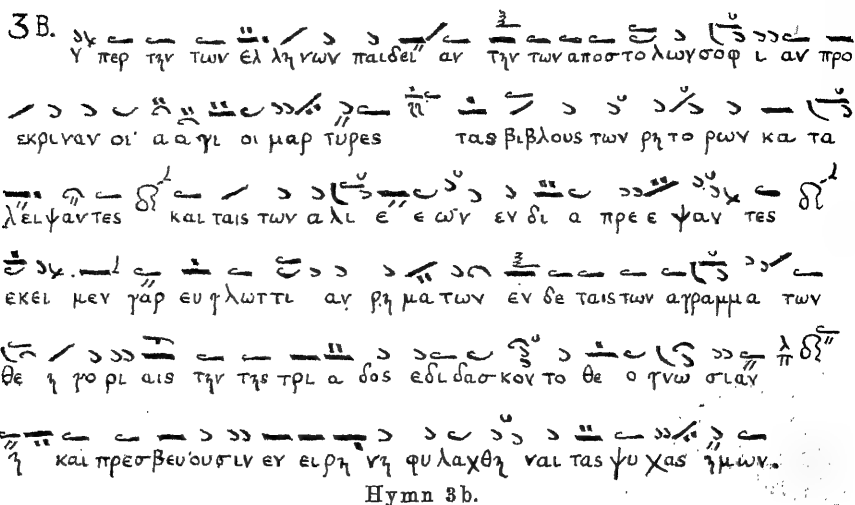 3 B.
Υ περ την των ελ ληνων παιδει αν την των αποστο λων σοφ ι αν προ
εκριναν οι α α γι οι μαρ τυρες τας βιβλους των ρη το ρων κα τα
λειψαντες και ταις των α λι ε ε ων εν δι α πρε ε ψαν τες
εκει μεν γαρ ευ γλωττι αν ρη μα των εν δε ταις των αγραμμα των
θε η γο ρι αις την της τρι α δος εδι δασ κον το θε ο γνω σιαν
η και πρεσβευουσιν εν ειρη νη φυ λαχθη ναι τας ψυ χας ημων.
Hymn 3b.